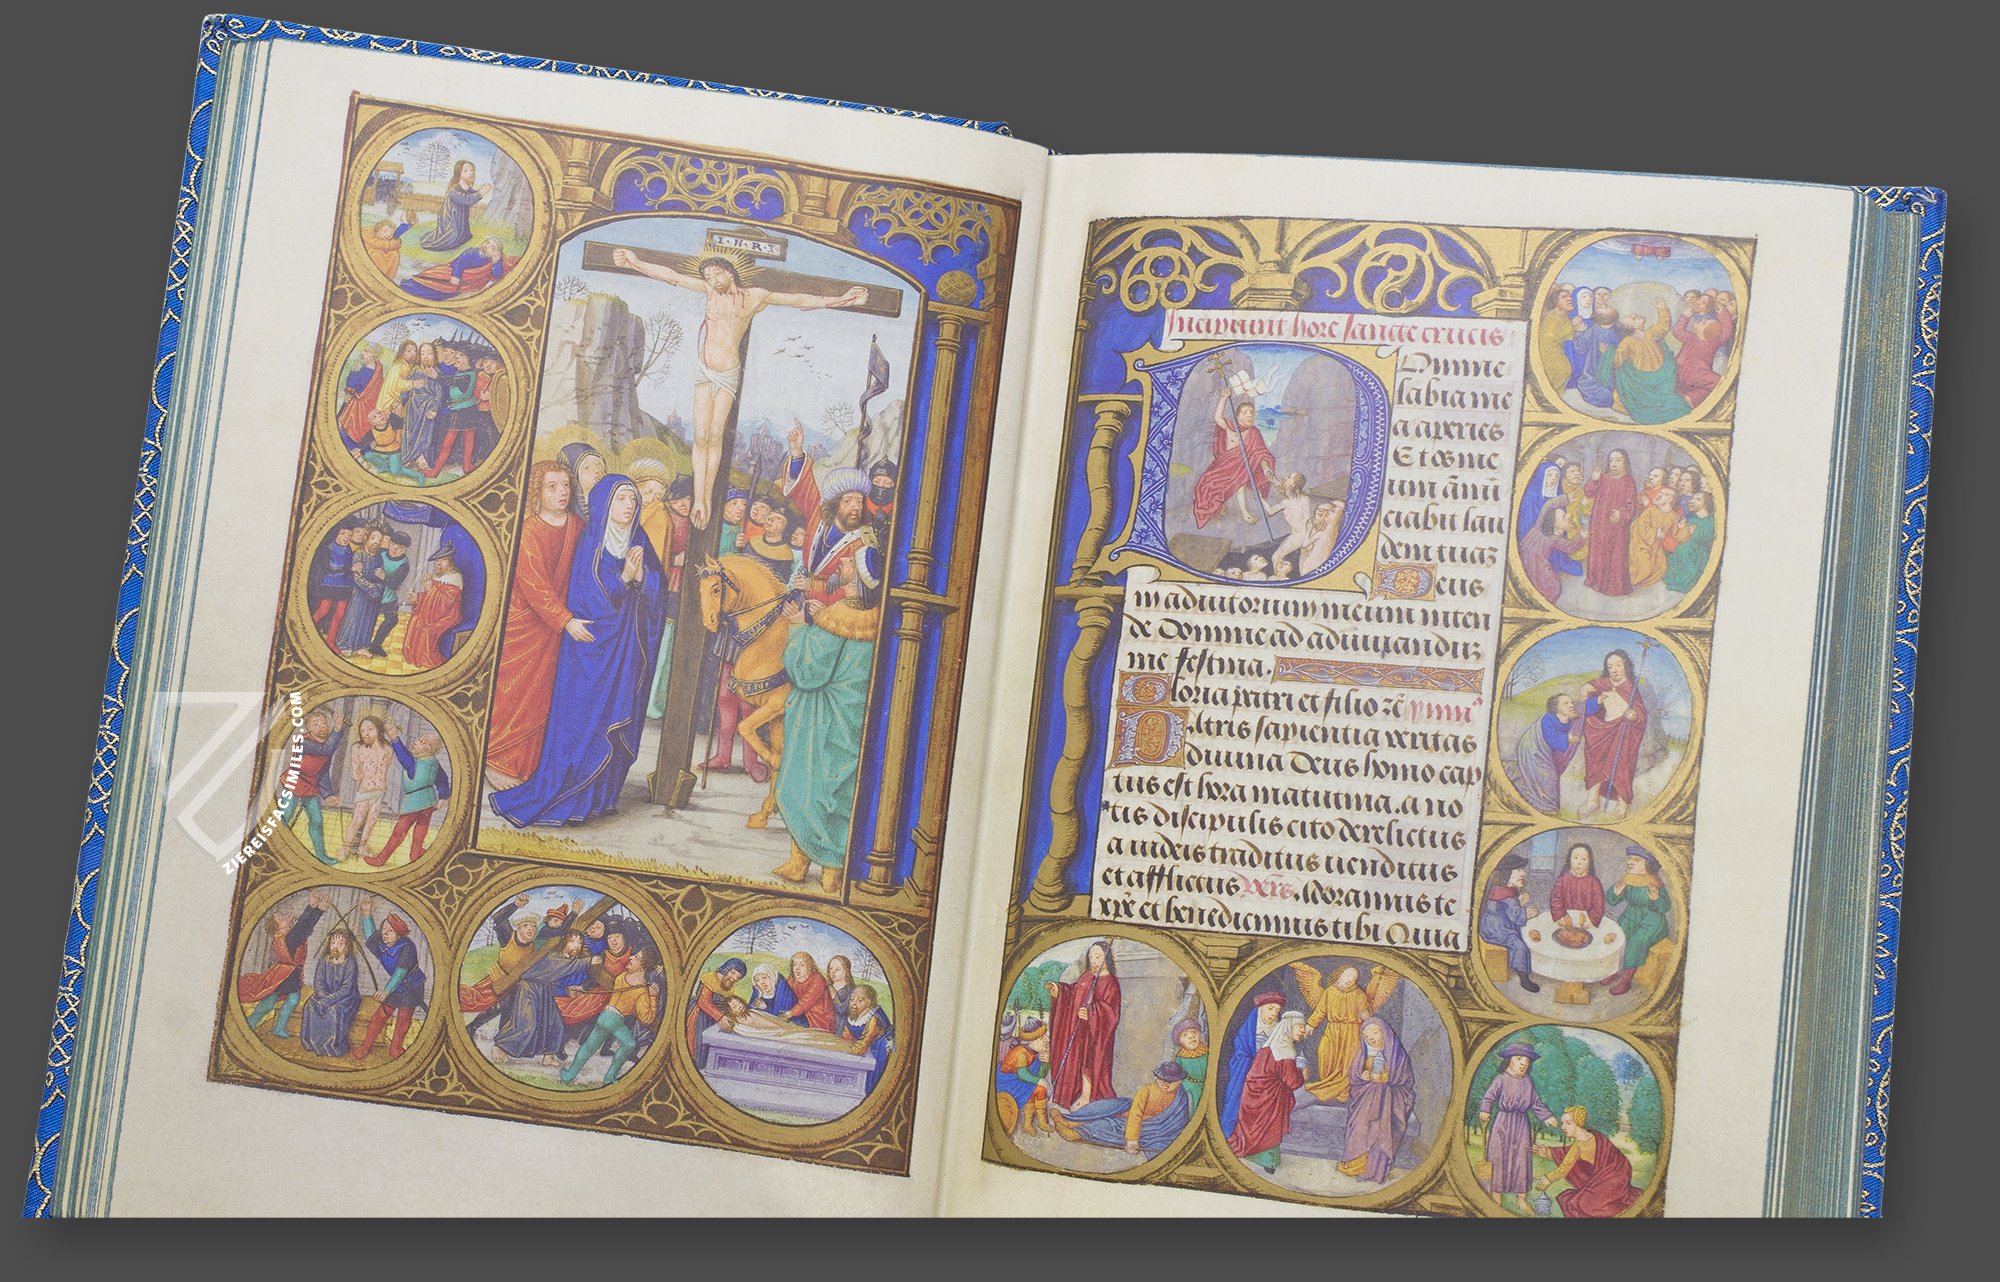 I·N·R·I
Incipiunt hore sancte crucis
Domine
labia me
a aperies
Et os me
um ānū
ciabit lau
dem tuaꝫ
Deus
in adiutorium meum inten
de Domine ad adiuuandūꝫ
me festina.
Gloria patri et filio ⁊c̄ ymn⁹
Patris sapientia veritas
diuina Deus homo cap
tus est hora matutina. a no
tis discipulis cito derelictus
a iudeis traditus uenditus
et afflictus v̄ers. Adoramus te
xp̄e et benedicimus tibi Quia
ZIEREISFACSIMILES.COM